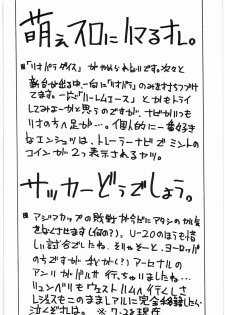 萌えスロにハマるオレ。
■「リオパラダイス」がやめられないです。次々と
新台が出る中、一向に「リオパラ」のみを打ちつづけ
てます。一応「ハーレムエース」とかもトライ
してみよーかと思うのですが、ナゼかいつも
リオの方へ足が…。個人的に一番好き
なエンジェツは、トレーラーナビで ミントの
コインが 2つ表示されるヤツ。
サッカーどうでしょう。
■ アジアカップの敗戦が今だにアタシの
をなえさせます(何の?)。U-20のほうも惜
しい試合でしたね。そりゃそーと、ヨーロッパ
の方ですが 我が(?) アーセナルの
アンリがバルサ 行っちゃいましたね…
リュンベリもウエストハムへ行くしさ
レジェスもこのままアトレに完全移籍したら
泣くぞオレは。 ※7.23現在